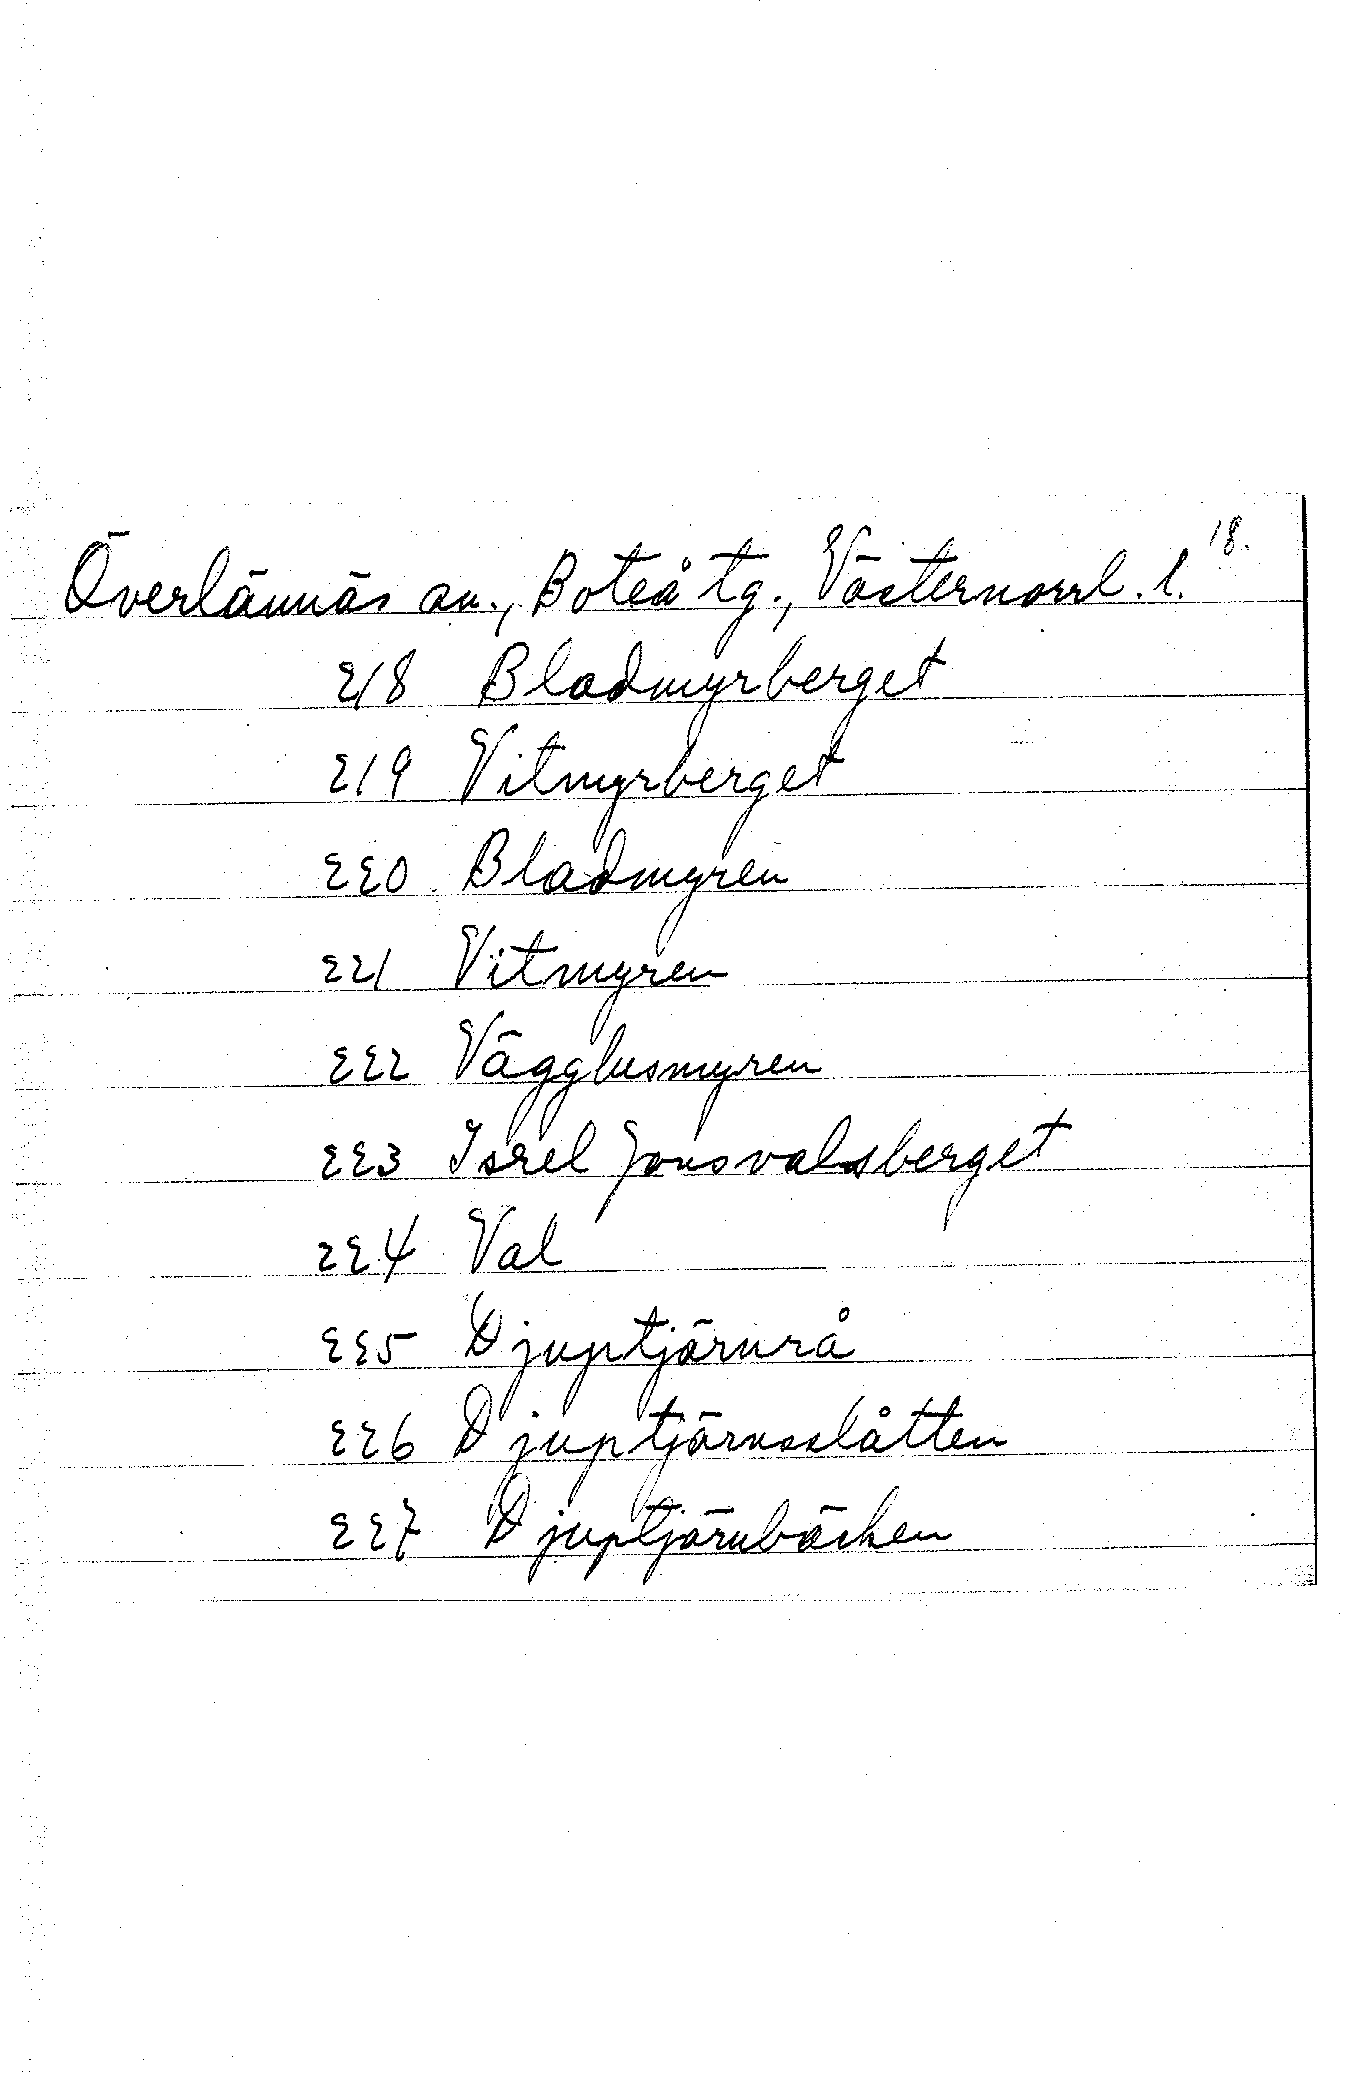 18.
Överlännäs sn., Boteå tg., Västernorrl. l.
218 Bladmyrberget
219 Vitmyrberget
220 Bladmyren
221 Vitmyren
222 Vägglusmyren
223 Isrel Jonsvalsberget
224 Val
225 Djuptjärnrå
226 Djuptjärnsslåtten
227 Djuptjärnbäcken